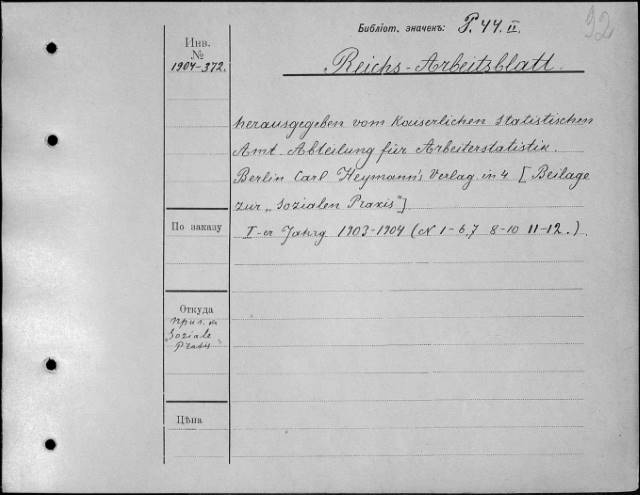 32
Библіот. значекъ: P. 44. II.
Инв.
№
1904-372.
Reichs-Arbeitsblatt.
herausgegeben vom Kaiserlichen Statistischen
Amt Abteilung für Arbeiterstatistik.
Berlin Carl Heymann's Verlag in 4 [Beilage
zur „Sozialen Praxis"]
I-er Jahrg 1903-1904 (N 1-6,7 8-10 11-12.)
По заказу
Откуда
прил. къ
„Soziale
Praxis"
Цѣна